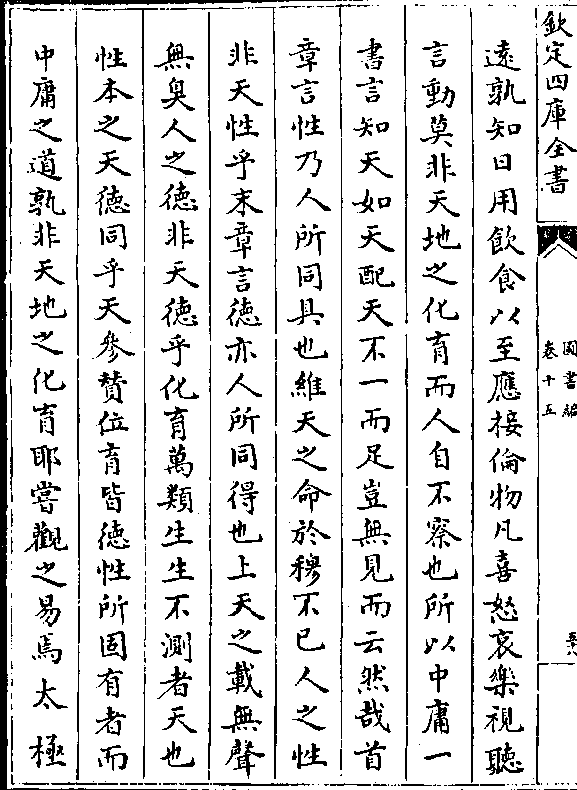 欽定四庫全書
圖書編
卷十五
五十八
遠孰知日用飲食以至應接倫物凡喜怒哀樂視聽
言動莫非天地之化育而人自不察也所以中庸一
書言知天如天配天不一而足豈無見而云然哉首
章言性乃人所同具也維天之命於穆不已人之性
非天性乎末章言德亦人所同得也上天之載無聲
無臭人之德非天德乎化育萬類生生不測者天也
性本之天德同乎天參贊位育皆德性所固有者而
中庸之道孰非天地之化育耶嘗觀之易焉太極